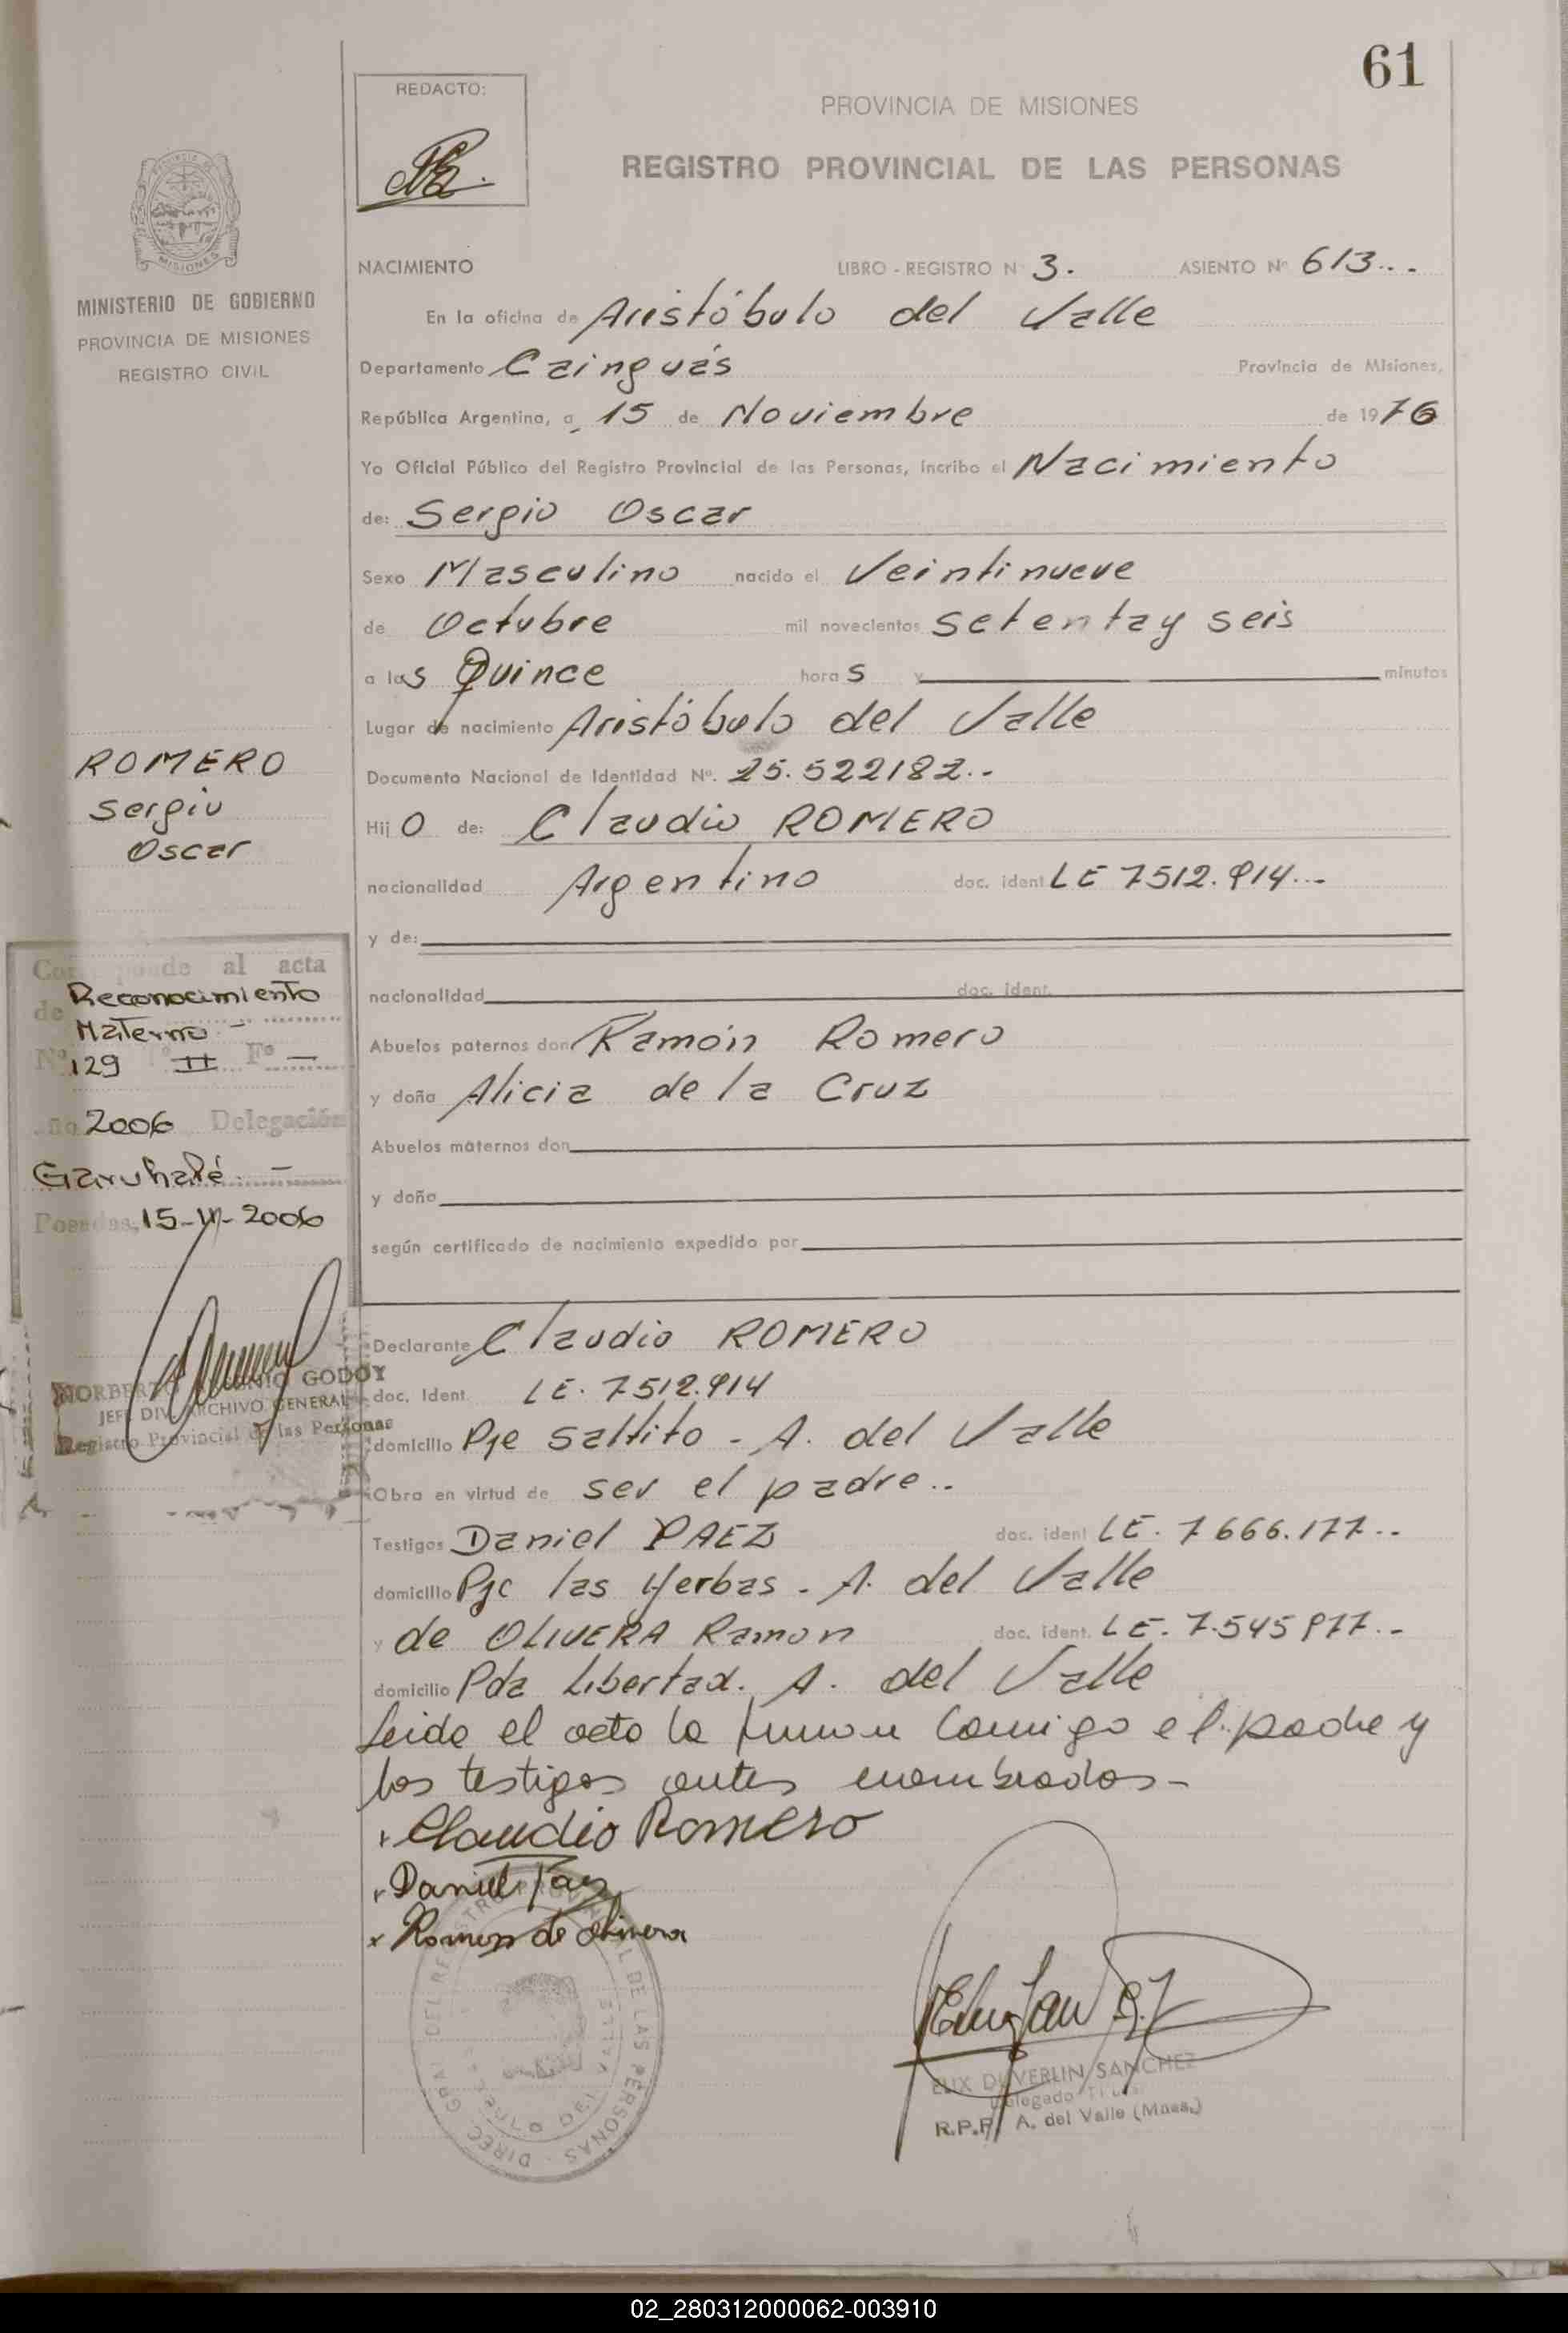 61
REDACTO:
PROVINCIA DE MISIONES
REGISTRO PROVINCIAL DE LAS PERSONAS
MISIONES
MINISTERIO DE GOBIERNO
PROVINCIA DE MISIONES
REGISTRO CIVIL
NACIMIENTO LIBRO - REGISTRO N 3. ASIENTO Nº 613...
En la oficina de Aristóbulo del Valle
Departamento Cainguás Provincia de Misiones,
República Argentina, a 15 de Noviembre de 1976
Yo Oficial Público del Registro Provincial de las Personas, incribo el Nacimiento
de: Sergio Oscar
Sexo Masculino nacido el Veintinueve
de Octubre mil novecientos setentay seis
a las Quince horas y minutos
Lugar de nacimiento Aristóbulo del Valle
Documento Nacional de Identidad Nº. 25.522182..-
Hijo de: Claudio ROMERO
nacionalidad Argentino doc. ident. LE 7512.914...-
y de:
nacionalidad doc. ident.
Abuelos paternos don Ramón Romero
y doña Alicia de la Cruz
Abuelos maternos don
y doña
según certificado de nacimiento expedido por
Declarante Claudio ROMERO
doc. Ident. LE. 7512.914
domicilio Pje Saltito - A. del Valle
Obra en virtud de ser el padre..
Testigos Daniel PAEZ doc. ident LE. 7666.177..
domicilio Pje las Yerbas - A. del Valle
y de OLIVERA Ramon doc. ident. LE. 7.545977..-
domicilio Pda Libertad. A. del Valle
Leida el acta la firman conmigo el padre y
los testigos antes nombrados-
Claudio Romero
Daniel Paez
Ramon de Olivera
DIREC. GRAL DEL REGISTRO PROVINCIAL DE LAS PERSONAS
DEL VALLE
ELIX DUVERLIN SANCHEZ
Delegado Titular
R.P.P. A. del Valle (Mnes.)
ROMERO
Sergio
Oscar
Corresponde al acta
de Reconocimiento
Materno -
Nº 129 Tº II Fº -
año 2006 Delegación
Garuhapé. -
Posadas, 15-VI-2006
NORBERTO ANTONIO GODOY
JEFE DIV. ARCHIVO GENERAL
Registro Provincial de las Personas
02_280312000062-003910